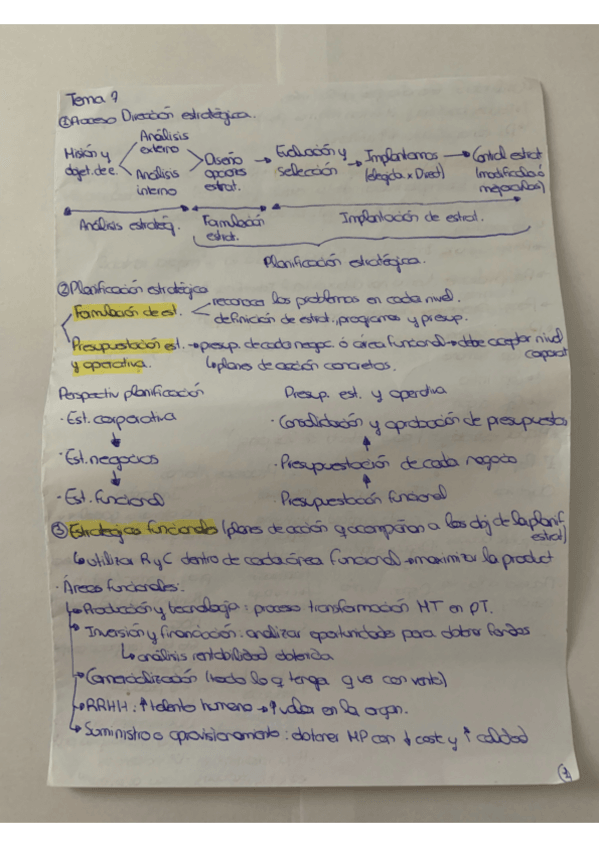 Tema 7
① Acceso Dirección estratégica.
Misión y objet. de e.
Análisis externo
Análisis interno
Diseño opciones estrat.
→ Evaluación y selección
→ Implantamos (elegida x Direct)
→ Control estrat (modificarla ó mejorarlas)
Análisis estratég.
Formulación estrat.
Implantación de estrat.
Planificación estratégica.
② Planificación estratégica
Formulación de est.
reconocer los problemas en cada nivel.
definición de estrat., programas y presup.
Presupuestación est. y operativa. → presup. de cada negoc. ó área funcional → debe aceptar nivel corporat
↳ planes de acción concretos.
Perspectiv planificación
· Est. corporativa
↓
· Est. negocios
↓
· Est. funcional
Presup. est. y operativa
· Consolidación y aprobación de presupuestos
↑
· Presupuestación de cada negocio
↑
· Presupuestación funcional
③ Estrategias funcionales (planes de acción q acompañan a los obj de la planif estrat)
↳ utilizar R y C dentro de cada área funcional → maximizar la product
· Áreas funcionales:
→ Producción y tecnología: proceso transformación MT en PT.
→ Inversión y financiación: analizar oportunidades para obtener fondos
↳ análisis rentabilidad obtenida
→ Comercialización (todo lo q tenga q ver con venta)
→ RRHH: ↑ talento humano → ↑ valor en la organ.
→ Suministro o aprovisionamiento: obtener MP con ↓ cost y ↑ calidad